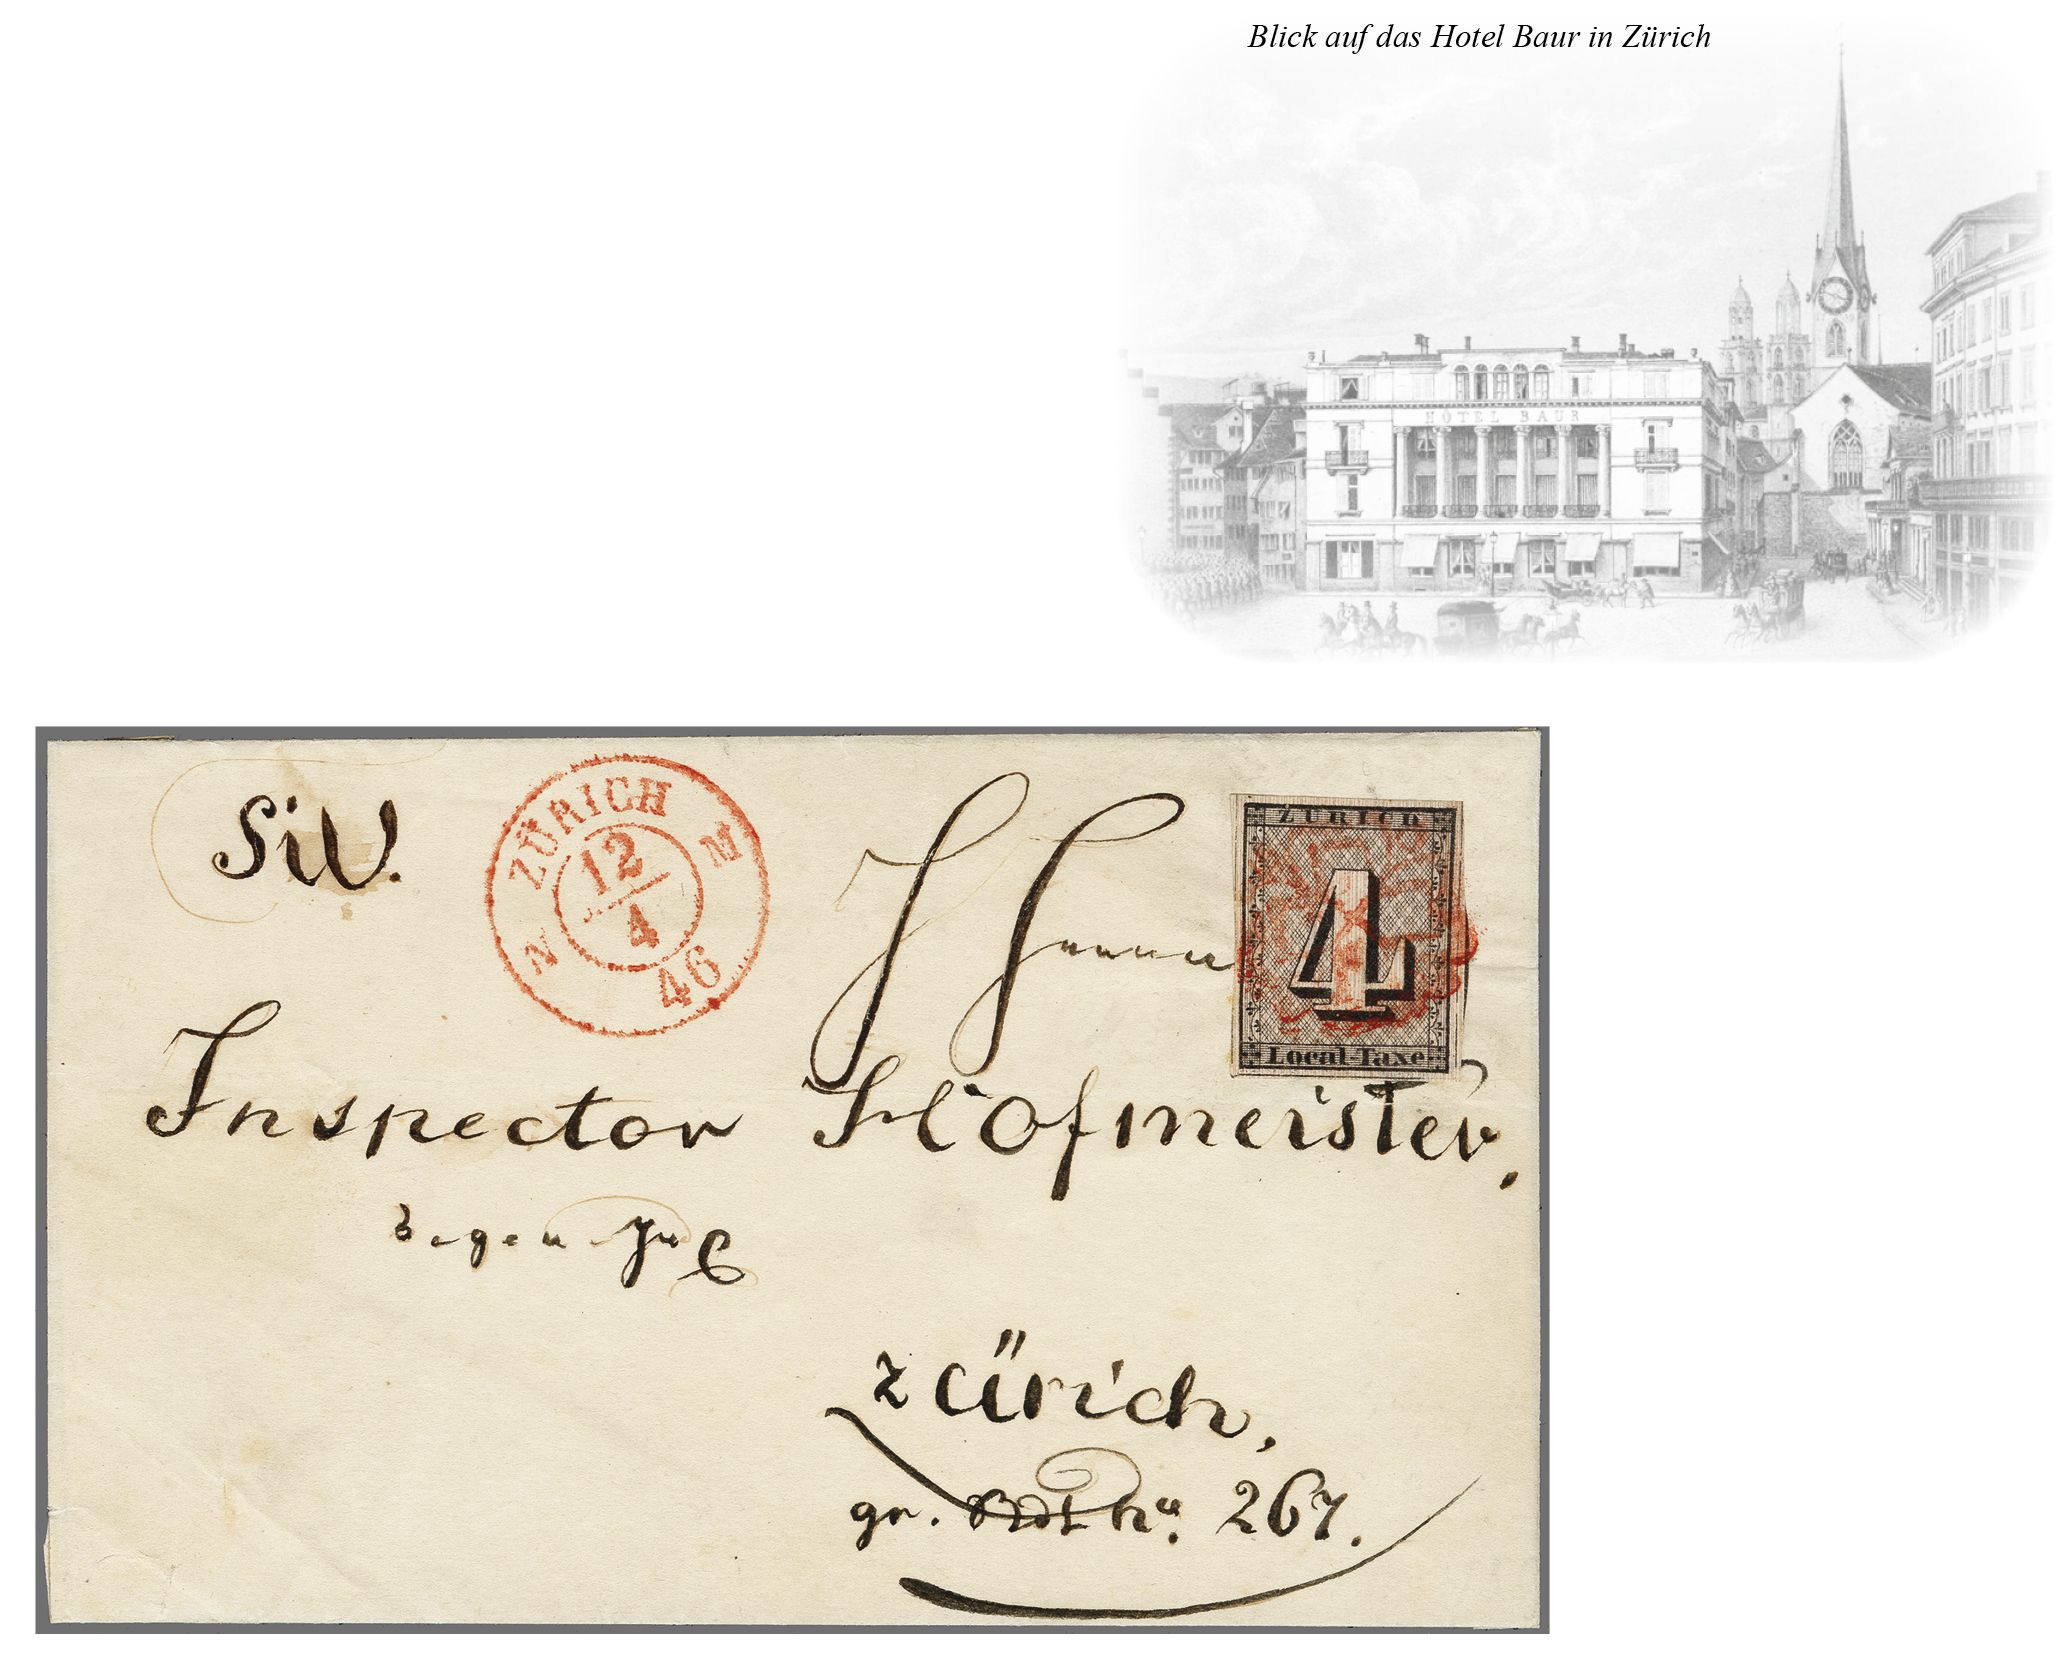 Blick auf das Hotel Baur in Zürich
HÔTEL BAUR
SiW.
ZÜRICH
N M
12
4
46
ZÜRICH
4
Local-Taxe
Inspector Hofmeister,
Zürich,
gr. No. 267.